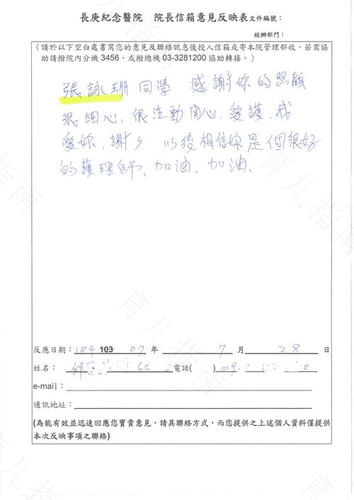 長庚紀念醫院 院長信箱意見反映表文件編號：
經辦部門：
(請於以下空白處書寫您的意見及聯絡訊息後投入信箱或寄本院管理部收。若需協
助請撥院內分機 3456，或撥總機 03-3281200 協助轉接。)
張詠珊 同學 感謝妳的照顧
很細心，很注動関心，愛護，我
愛妳，謝々 以後相信妳是個很好
的護理師、加油、加油.
反應日期：104 103 07 年 7 月 28 日
姓名： 電話( )
e-mail：
通訊地址：
(為能有效並迅速回應您寶貴意見，請具聯絡方式，而您提供之上述個人資料僅提供
本次反映事項之聯絡)
育儿指南